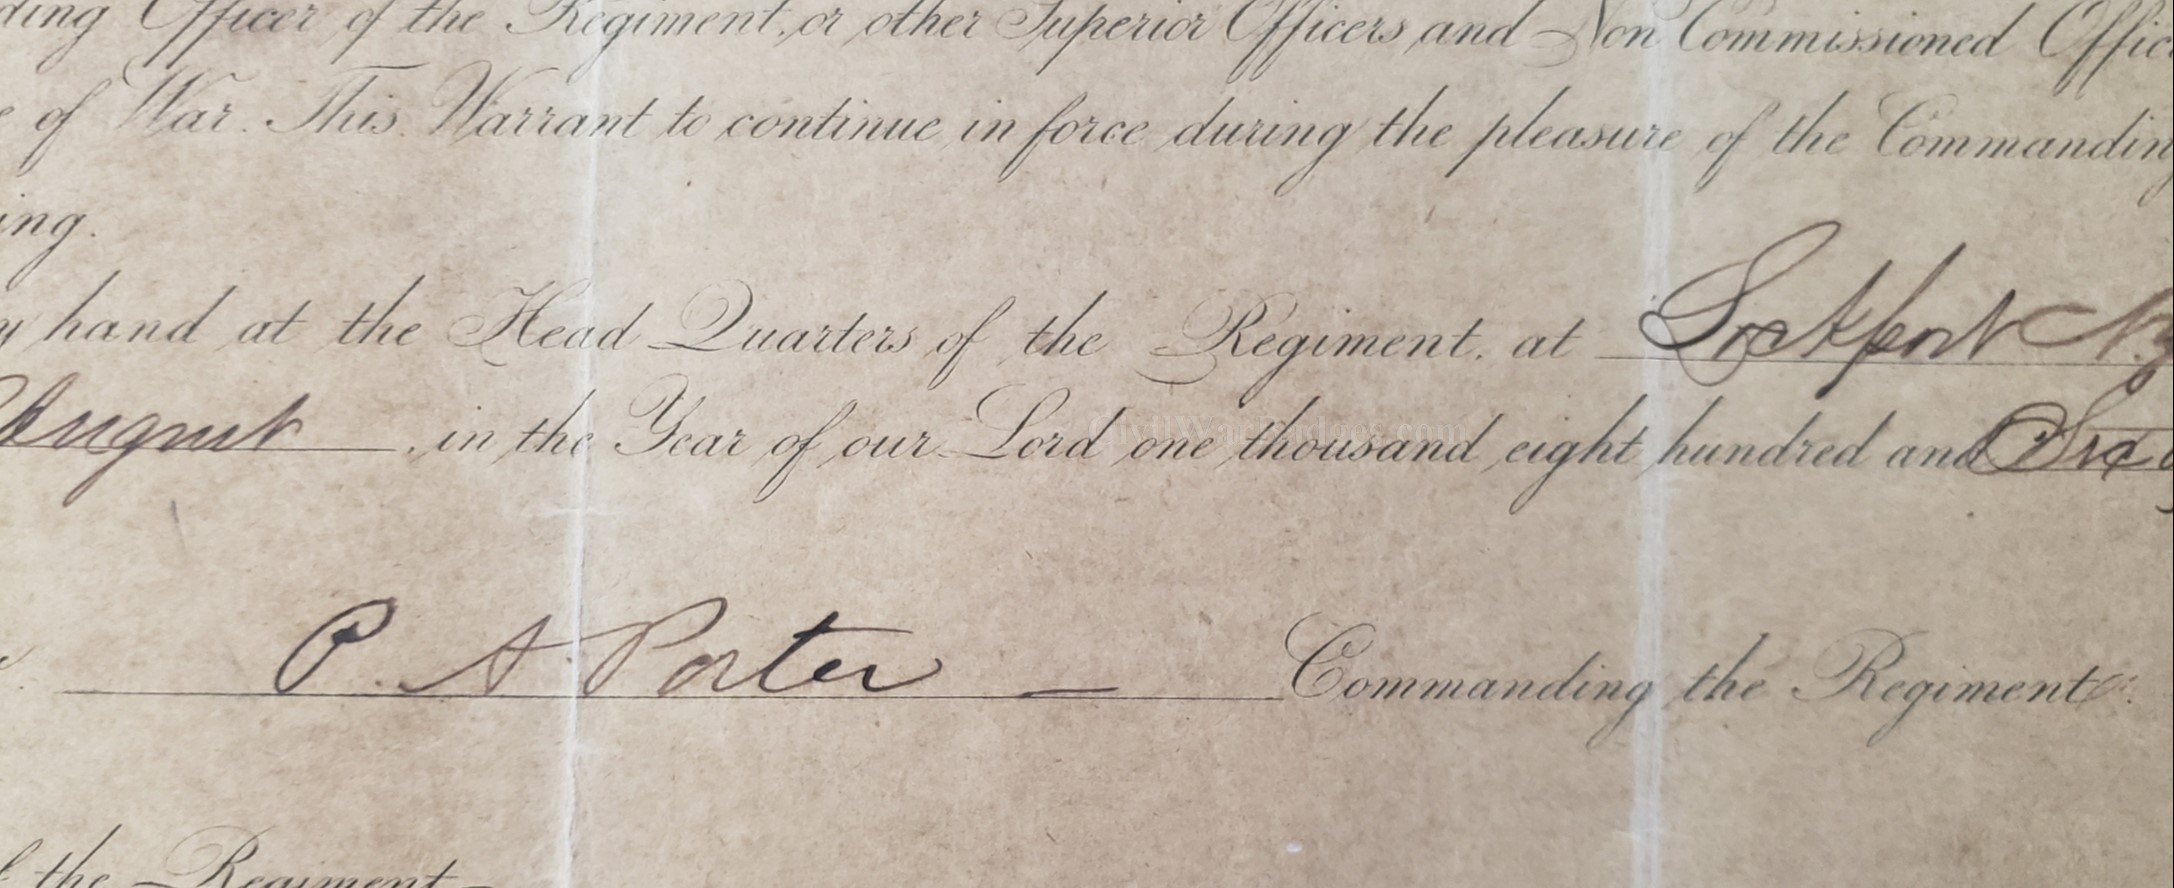 ding Officer of the Regiment, or other Superior Officers and Non Commissioned Offic
e of War. This Warrant to continue in force during the pleasure of the Commanding
ing.
y hand at the Head Quarters of the Regiment, at Lockport N.Y
August, in the Year of our Lord one thousand eight hundred and Six
CivilWarBadges.com
P. A Porter — Commanding the Regiment.
f the Regiment